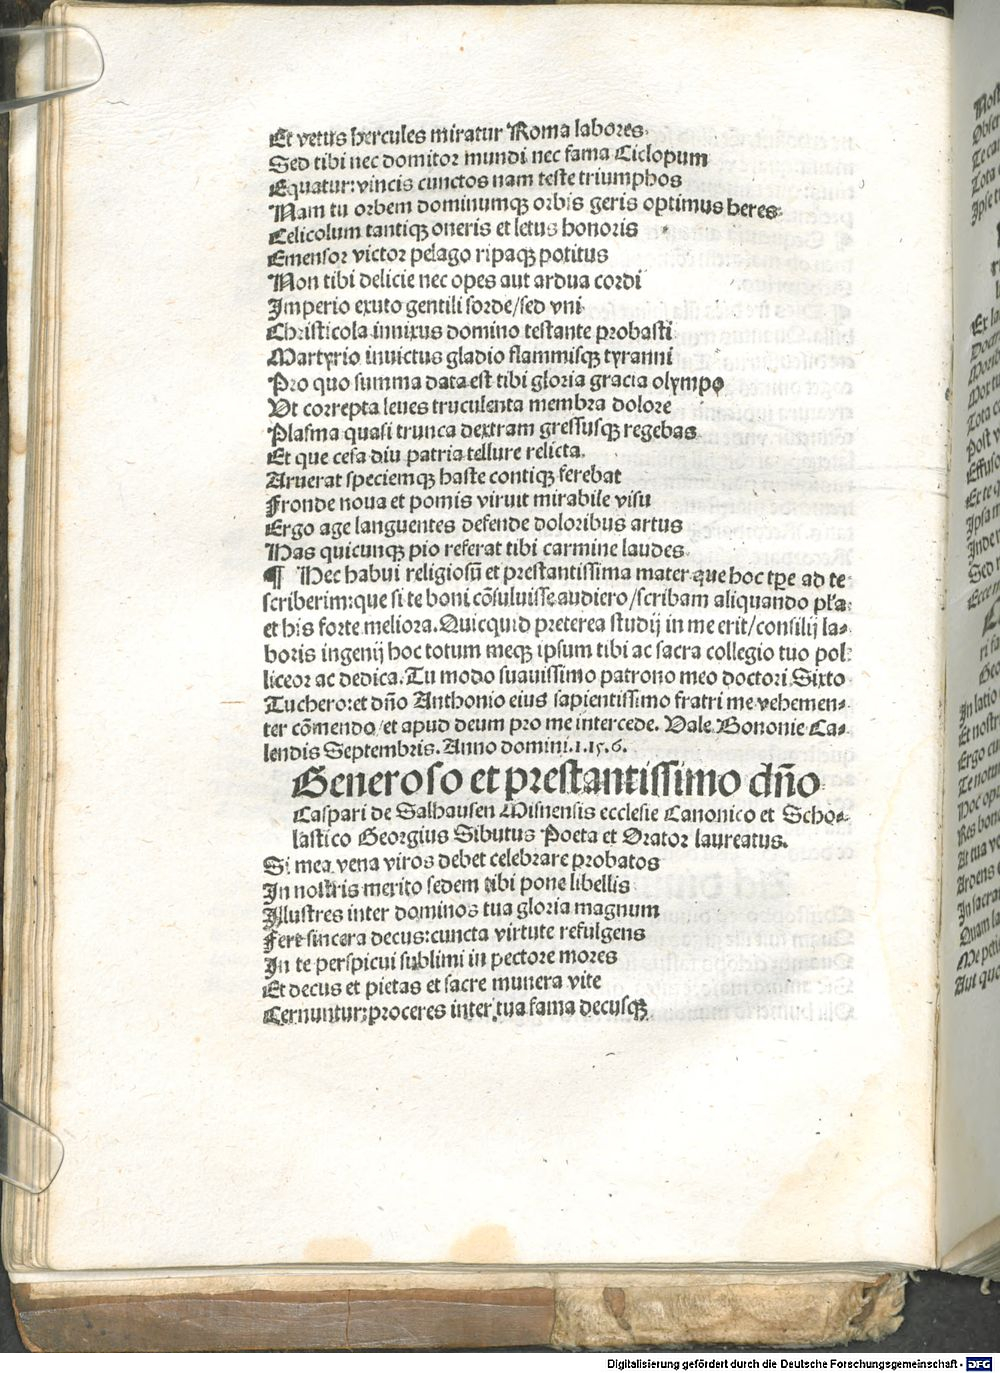 Et vetus hercules miratur Roma labores.
Sed tibi nec domitor mundi nec fama Ciclopum
Equatur: vincis cunctos nam teste triumphos
Nam tu orbem dominumqꝫ orbis geris optimus heres:
Celicolum tantiqꝫ oneris et letus honoris
Emensor victor pelago ripaqꝫ potitus
Non tibi delicie nec opes aut ardua cordi
Imperio exuto gentili sorde/sed vni
Christicola innixus domino testante probasti
Martyrio inuictus gladio flammisqꝫ tyranni
Pro quo summa data est tibi gloria gracia olympo
Vt correpta leues truculenta membra dolore
Plasma quasi trunca dextram gressusqꝫ regebas
Et que cesa diu patria tellure relicta.
Aruerat speciemqꝫ haste contiqꝫ ferebat
Fronde noua et pomis viruit mirabile visu
Ergo age languentes defende doloribus artus
Has quicunqꝫ pio referat tibi carmine laudes.
¶ Hec habui religiosū et prestantissima mater que hoc tꝑe ad te
scriberim: que si te boni cōsuluisse audiero/scribam aliquando pl̄a:
et his forte meliora. Quicquid preterea studij in me erit/consilij la-
boris ingenij hoc totum meqꝫ ipsum tibi ac sacra collegio tuo pol:
liceor ac dedica. Tu modo suauissimo patrono meo doctori Sixto
Tuchero: et dn̄o Anthonio eius sapientissimo fratri me vehemen-
ter cōmendo/et apud deum pro me intercede. Vale Bononie Ca-
lendis Septembris. Anno domini. 1.15.6.
Generoso et prestantissimo dn̄o
Caspari de Salhausen Misnensis ecclesie Canonico et Scho-
lastico Georgius Sibutus Poeta et Orator laureatus.
Si mea vena viros debet celebrare probatos
In nostris merito sedem tibi pone libellis
Illustres inter dominos tua gloria magnum
Fert sincera decus: cuncta virtute refulgens
In te perspicui sublimi in pectore mores
Et decus et pietas et sacre munera vite
Cernuntur: proceres inter tua fama decusqꝫ
Digitalisierung gefördert durch die Deutsche Forschungsgemeinschaft - DFG